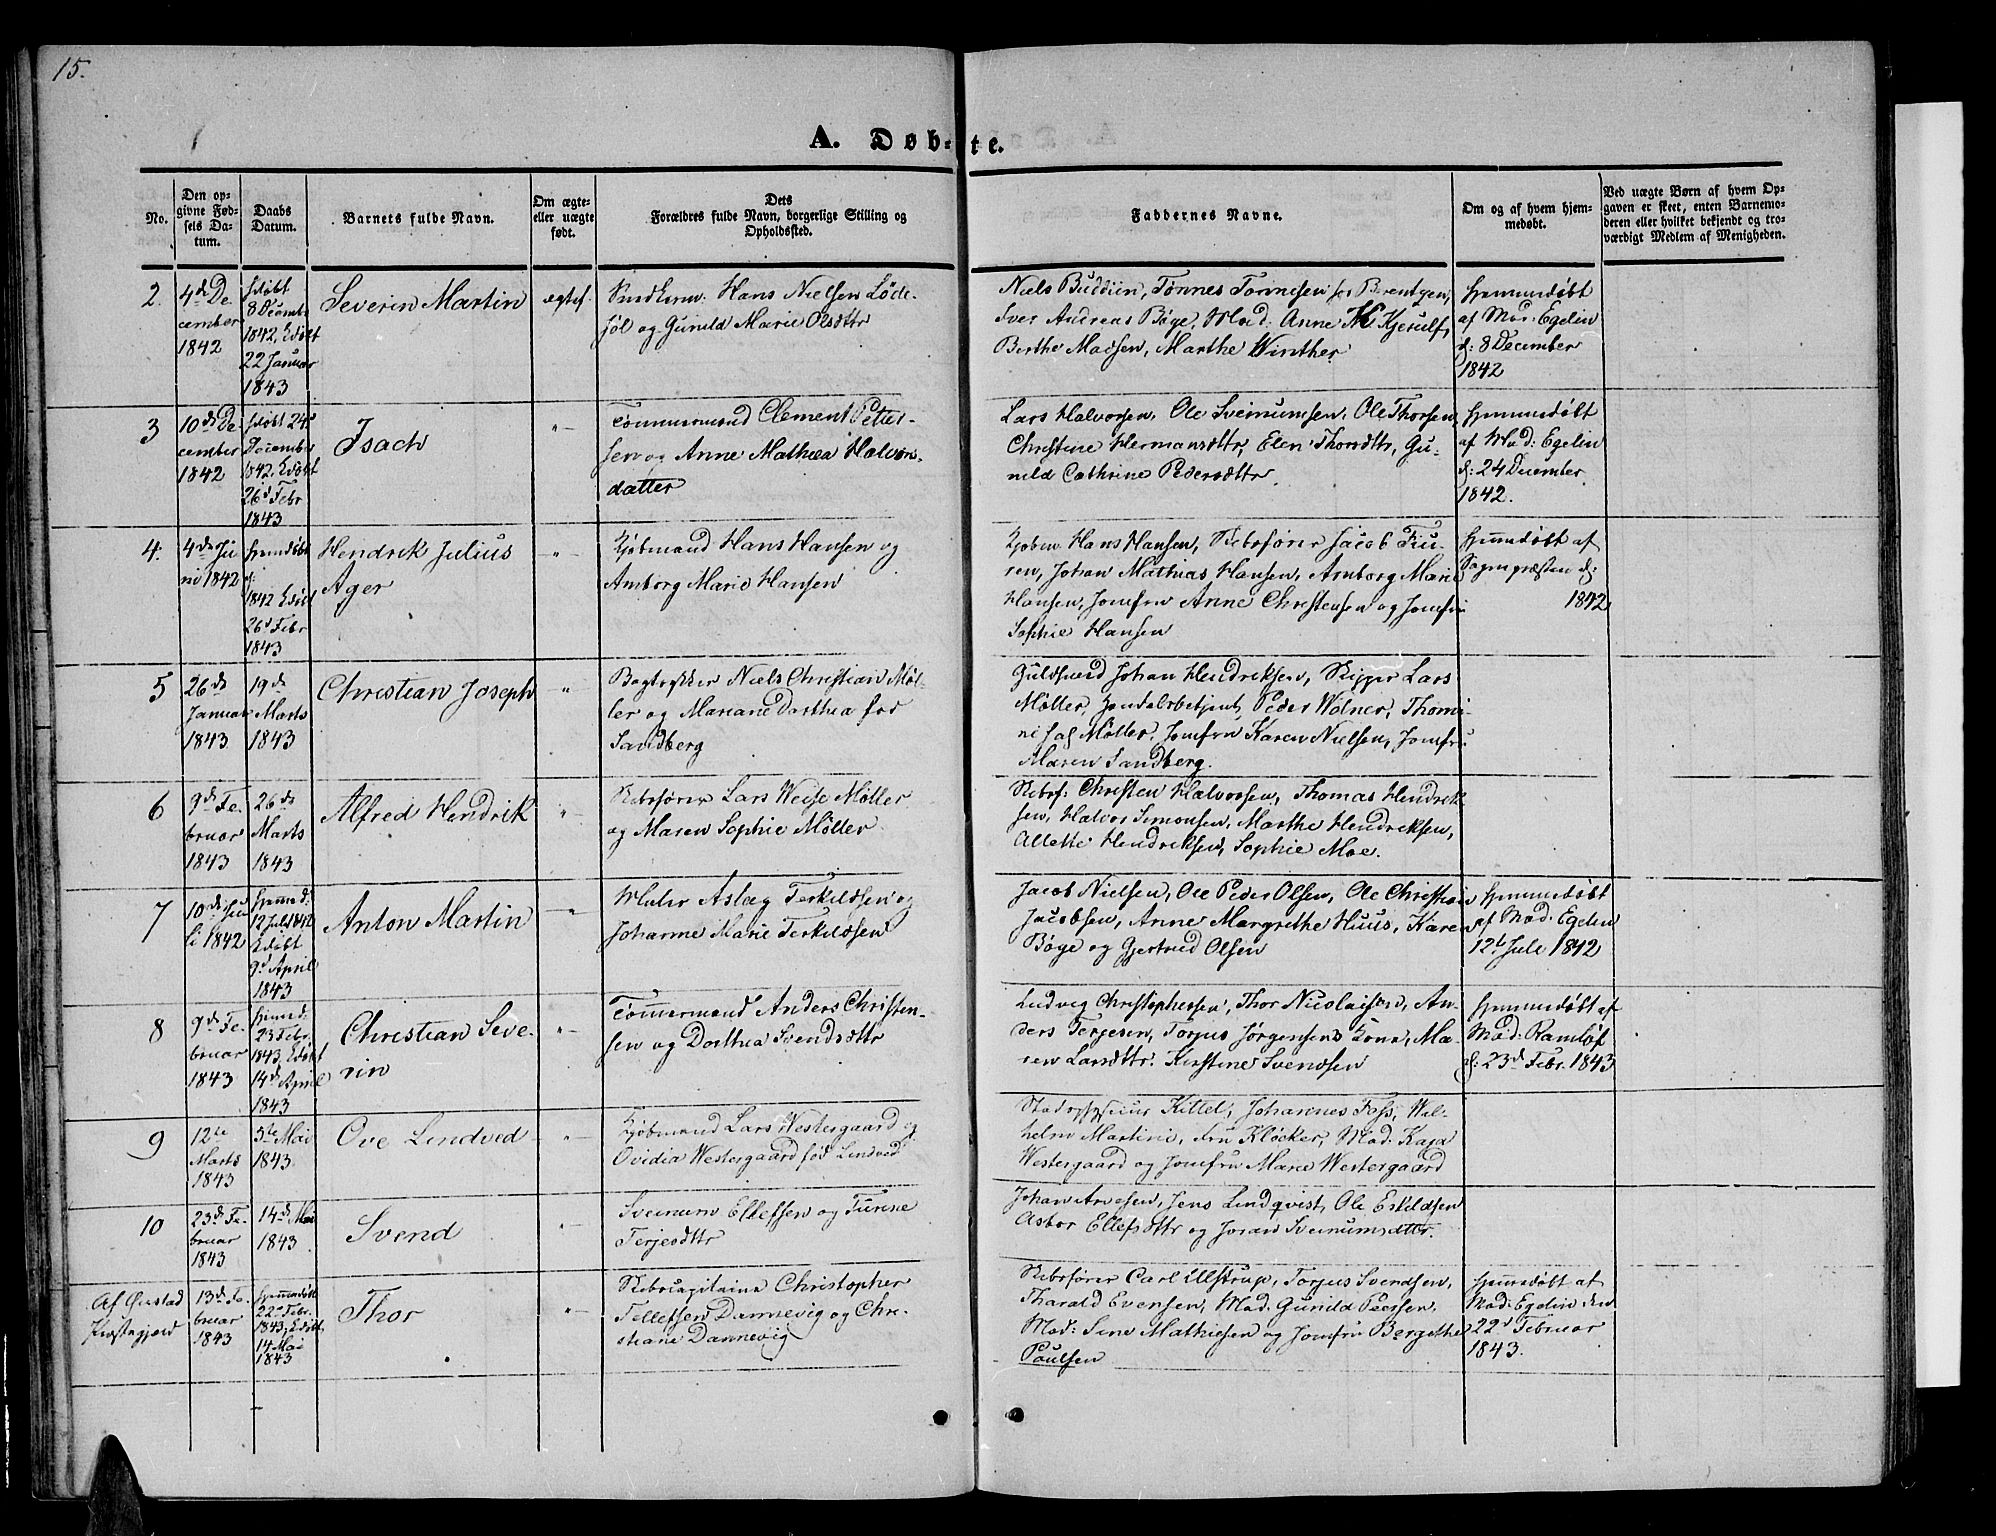 15.
A. Døb-
te.
No.
Den op-
givne Fød-
sels Da-
tum.
Daabs
Datum.
Barnets fulde Navn.
Om ægte
eller uægte
født.
Dets
Forældres fulde Navn, borgerlige Stilling og
Opholdssted.
Faddernes Navne.
Om og af hvem hjem-
medøbt.
Ved uægte Børn af hvem Op-
gaven er skeet, enten Barnemo-
deren eller hvilket bekjendt og tro-
værdigt Medlem af Menigheden.
2.
4de De
cember
1842
8 Decembr
1842,
22 Januar
1843
Severin Martin
ægtef.
Hans Nielsen Løde-
føl og Gunild Marie Olsdttr
Niels Buddiin, Tønnes Tønnesen for Berentsen,
Iver Andreas Bøge, Mad: Anne K Kjerulf,
Berthe Madsen, Marthe Winther
Hjemmedøbt
af Mad: Egelin
d: 8 December
1842
3
10de De
cember
1842
24de
December
1842.
26d Febr
1843
Isach
"—
Tømmermand Clement Petter-
sen og Anne Mathea Halvors-
datter
Lars Halvorsen, Ole Sveinumsen, Ole Thorsen,
Christine Hermansdttr, Elen Thorsdttr, Gu-
nild Cathrine Pedersdttr
Hjemmedøbt
af Mad: Egelin
d: 24 December
1842.
4.
4de Ju
ni 1842
hjemdøbt
d:
1842
26d Febr
1843
Hendrik Julius
Ager
"—
Kjøbmand Hans Hansen og
Amborg Marie Hansen
Kjøbm. Hans Hansen, Skibsfører Jacob
sen, Johan Mathias Hansen, Amborg Marie
Hansen, Jomfru Anne Christensen og Jomfru
Sophie Hansen
Hjemmedøbt af
Sognepræsten d:
1842
5
26de
Januar
1843
19de
Marts
1843
Christian Joseph
"
Bogtrykker Niels Christian Møl-
ler og Mariane Dorthea fød
Sandberg
Guldsmed Johan Hendriksen, Skipper Lars
Møller, Handelsbetjent Peder Wolner, Thomi-
ne Møller, Jomfru Karen Nielsen, Jomfru
Maren Sandberg.
6
9de Fe-
bruar
1843
26de
Marts
1843
Alfred Hendrik
"—
Skibsfører Lars Weise Møller
og Maren Sophie Møller
Skibsf: Christen Halvorsen, Thomas Hendrik
sen, Halvor Simonsen, Marthe Hendriksen,
Allette Hendriksen, Sophie Moe.
7
10de Ju
li 1842
hjemmed.
12 Juli 1842
9d April
1843
Anton Martin
"—
Asleg Terkildsen og
Johanne Marie Terkildsen
Jacob Nielsen, Ole Peder Olsen, Ole Christian
Jacobsen, Anne Margrethe Huus, Karen
Bøge og Gjertrud Olsen
Hjemmedøbt
af Mad: Egelin
12te Juli 1842
8
9de Fe-
bruar
1843
hjemmed.
23 Febr.
1843,
14d April
1843
Christian Seve-
rin
"—
Tømmermand Anders Christen-
sen og Dorthea Svendsdttr
Ludvig Christophersen, Thor Nicolaisen, An-
ders Terjesen, Torjus Jørgensens Kone, Ma-
ren Larsdttr. Kirstine Svendsen
Hjemmedøbt af
Mad: Ramløf
d: 23d Febr. 1843
9
12te
Marts
1843
5te Mai
1843
Ove Lindved
"—
Kjøbmand Lars Westergaard og
Ovidia Westergaard fød Lindved
Kittel, Johannes Foss, Wil-
helm Martini, Fru Kløcker, Mad: Kaja
Westergaard og Jomfru Marie Westergaard
10
23de Fe-
bruar
1843
14de Mai
1843
Svend
"—
Sveinum Ellefsen og Turine
Terjesdttr
Johan Arnesen, Jens Lindqvist, Ole Eskildsen
Asbor Ellefsdttr og Joran Sveinumsdatter.
Af Øiestad
Præstegjeld
13de Fe-
bruar
1843
hjemmedøbt
22de Febr.
1843,
14 Mai
1843
Thor
"—
Skibscapitaine Christopher
Tellefsen Dannevig og Chri-
stiane Dannevig
Skibsfører Carl Ulstrup, Torjus Svendsen,
Tharald Evensen, Mad: Gunild Peersen
Mad: Sine Mathiesen og Jomfru Bergithe
Paulsen
Hjemmedøbt af
Mad: Egelin den
22d Februar
1843.